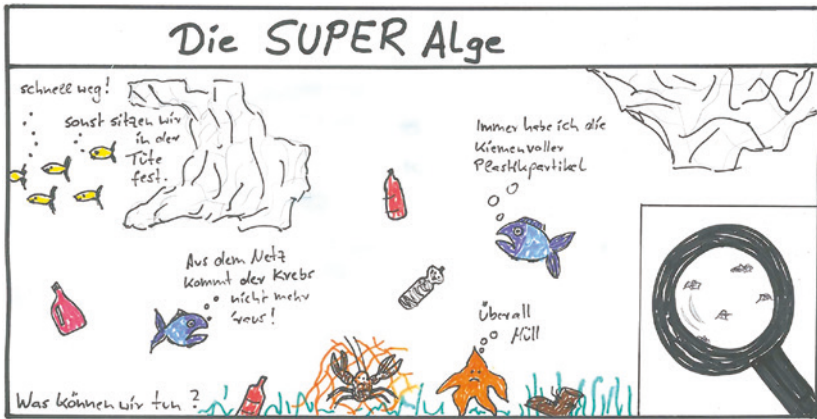 Die SUPER Alge
schnell weg!
sonst sitzen wir
in der
Tüte
fest.
Immer habe ich die
Kiemenvoller
Plastikpartikel
Aus dem Netz
kommt der Krebs
nicht mehr
raus!
Überall
Müll
Was können wir tun?